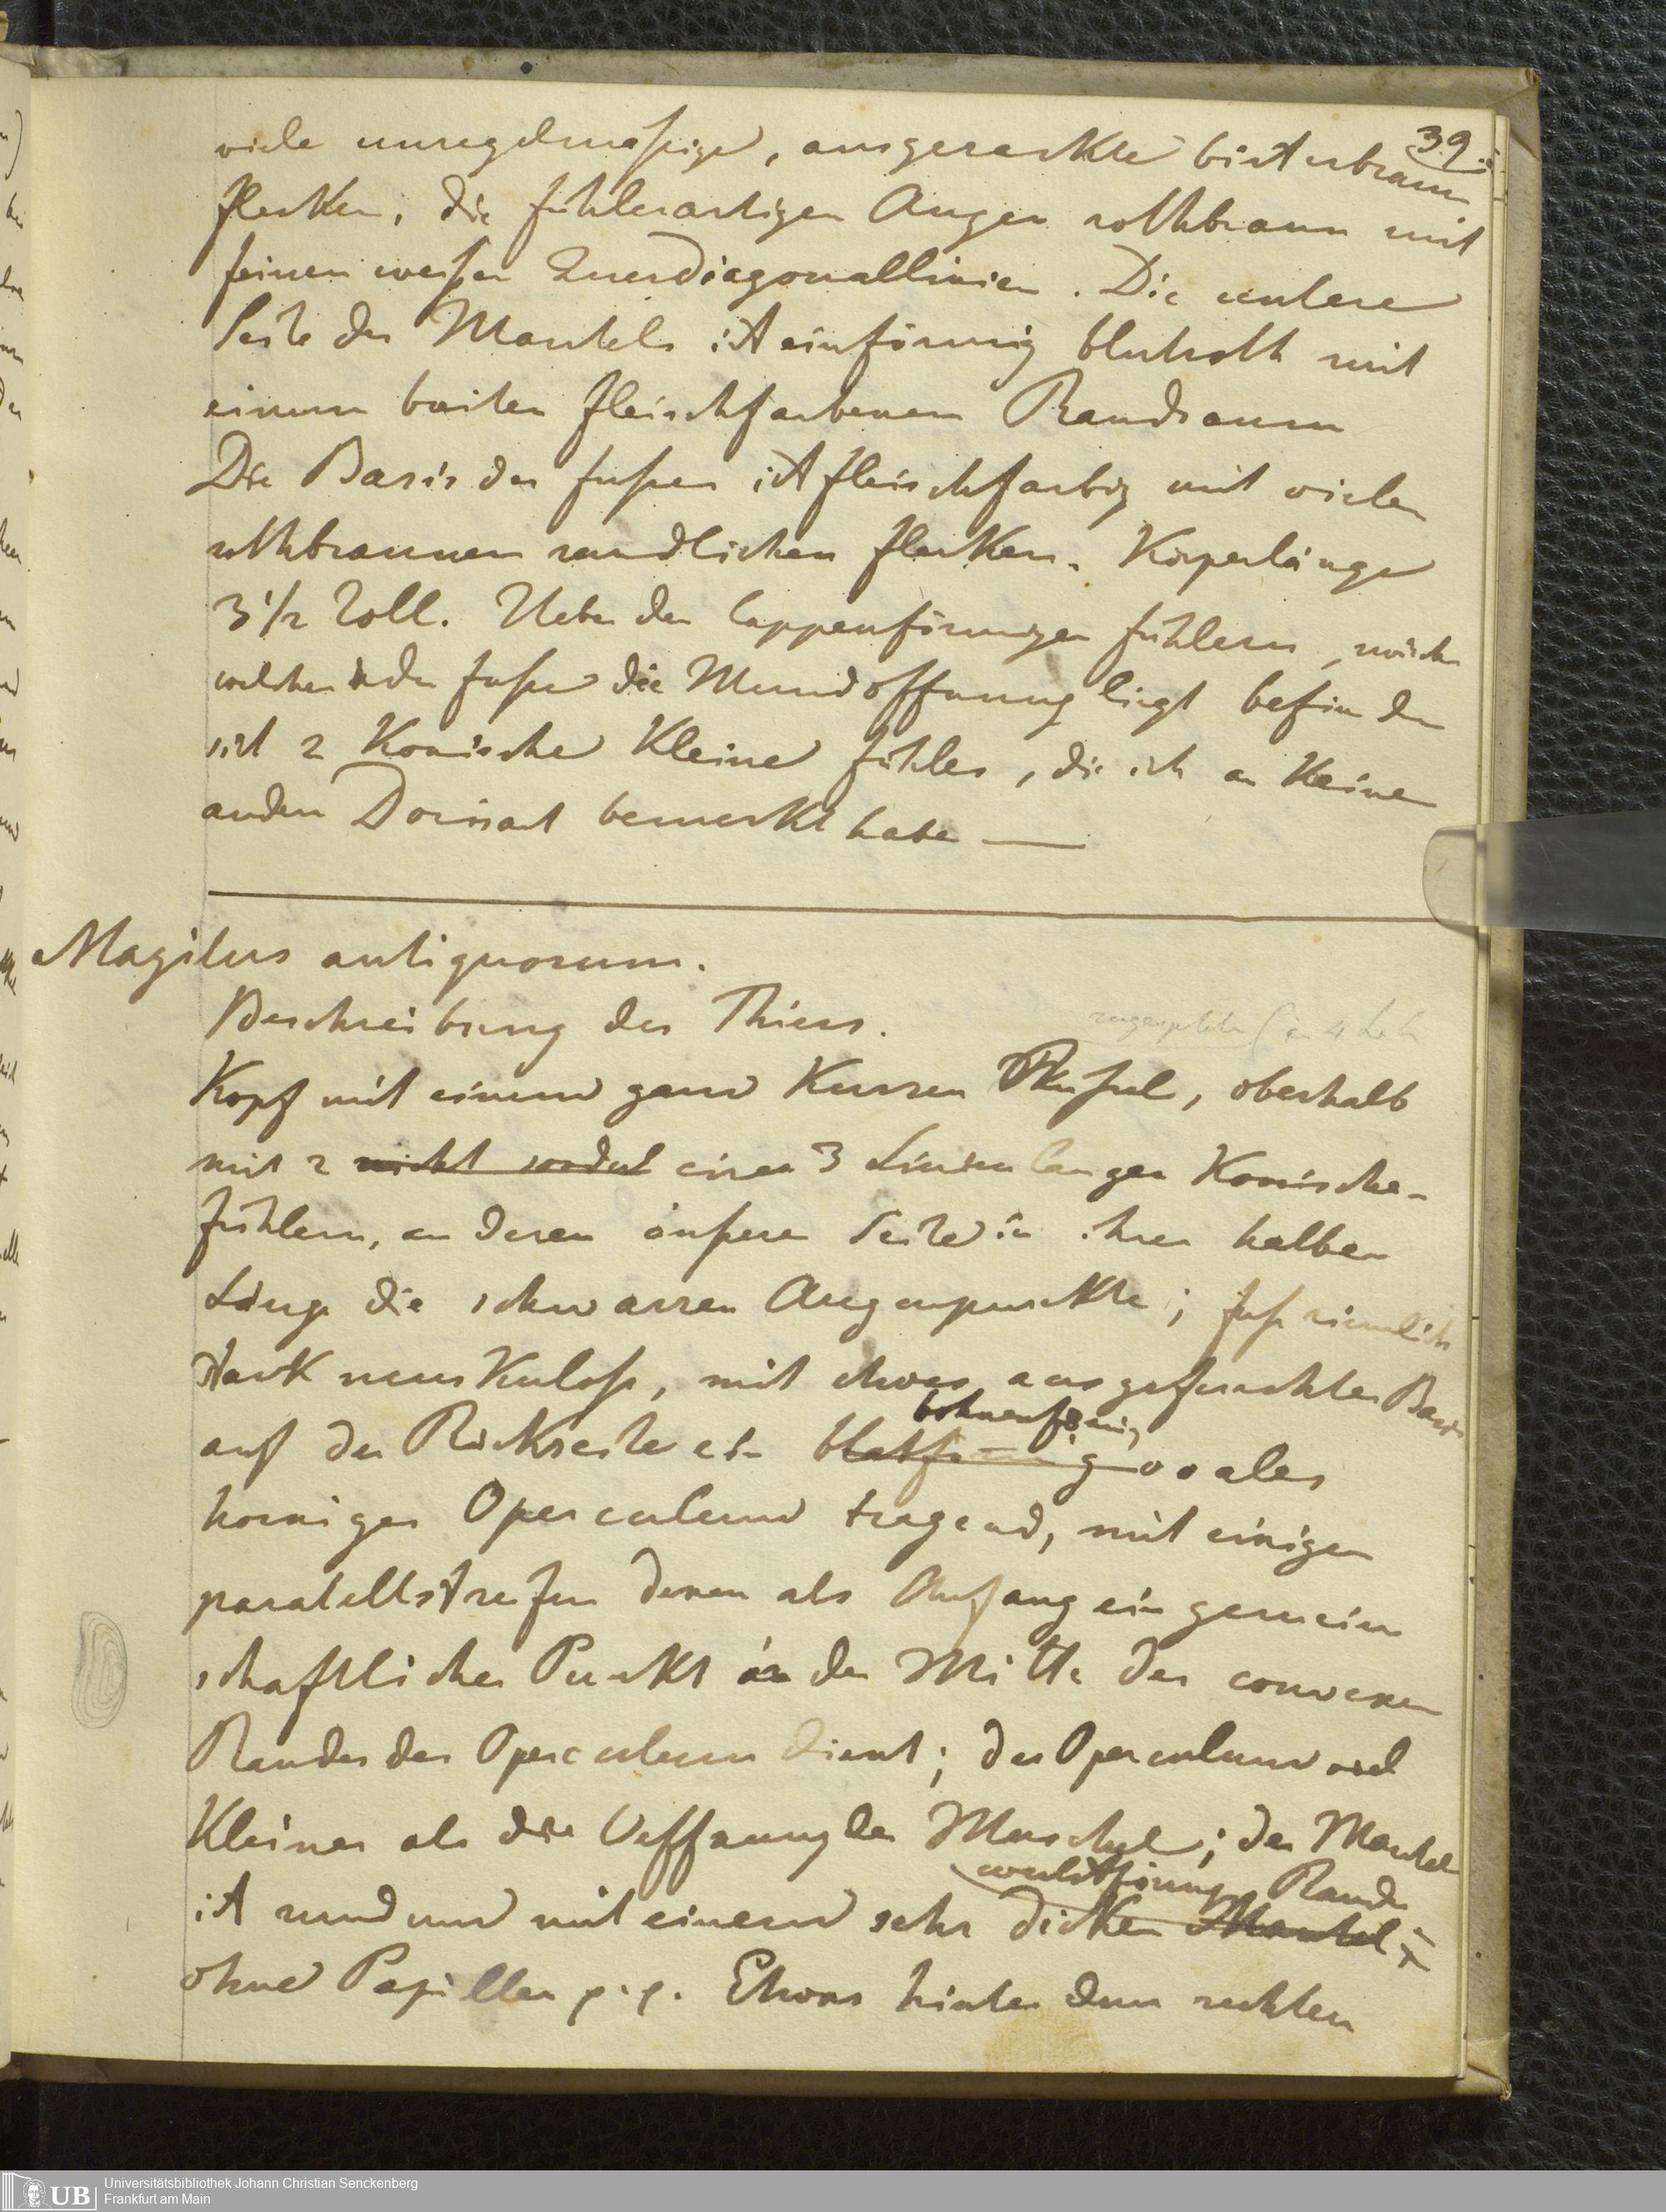 39.
viele unregelmaßige, ausgezackte bisterbraun
Flecken, die fühlerartigen Augen rothbraun mit
feinen weißen Querdiagonallinien. Die untere
Seite des Mantels ist einförmig blutroth mit
einem breiten fleischfarbenem Randsaum
Die Basis des Fußes ist fleischfarbig mit vielen
rothbraunen rundlichen Flecken. Körperlänge
3 1/2 Zoll. Ueber den lappenförmigen Fühlern, zwischen
welchen der Fußes die Mundöffnung liegt befinden
sich 2 Konische Kleine Fühler, die ich an Keiner
andern Dorisart bemerkt habe —
Magilus antiquorum.
Beschreibung des Thiers.
Kopf mit einem ganz Kurzen Rüßel, oberhalb
mit 2 nicht einen 3 Linien langen Konischen
Fühlern, an deren äußeren Seite in ihrer halben
Länge die schwarzen Augenpunkte; Fuß ziemlich
stark muskulos, mit etwas ausgefurchter Basis
bohnenförmig
auf der Rückseite ein blattförmig ovales
horniges Operculum tragend, mit einigen
parallelstreifen denen als Anfang ein gemein
schaftlicher Punkt in der Mitte des convexen
Randes des Operculum dient; das Operculum viel
Kleiner als die Oeffnung der Muschel; der Mantel
wulstförmigen Rande
ist rund um mit einem sehr dicken Mantel
ohne Papillen p.p. Etwas hinter dem rechten
Universitätsbibliothek Johann Christian Senckenberg
Frankfurt am Main
UB